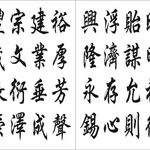 貽謀允則
浮濟存心
興隆永錫
裕厚芳聲
建業垂成
宗文衍澤